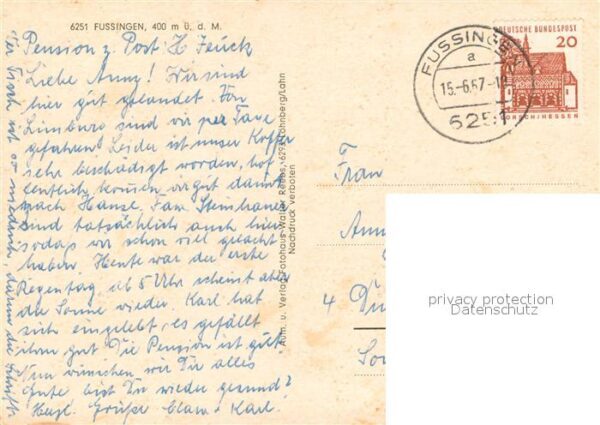 6251 FUSSINGEN, 400 m ü. d. M.
Pension z. Post H. Jeuck
Liebe Anny! Wir sind
hier gut gelandet. Von
Limburg sind wir per Taxe
gefahren. Leider ist unser Koffer
sehr beschädigt worden, hof
fentlich kommen wir gut damit
nach Hause. Fam. Steinhauer
sind tatsächlich auch hier
sodaß wir schon viel gelacht
haben. Heute war der erste
Regentag ab 5 Uhr scheint aber
die Sonne wieder. Karl hat
sich eingelebt, es gefällt
ihm gut. Die Pension ist gut.
Nun wünschen wir Dir alles
Gute bist Du wieder gesund?
Herzl. Grüße Clara + Karl.
Der Tisch ist so niedrig, darum die Schrift
Aufn. u. Verlag Fotohaus Walter Reeps, 6291 Lohnberg/Lahn
Nachdruck verboten
FUSSINGEN
a
15.-6.67-12
6251
DEUTSCHE BUNDESPOST
20
LORSCH/HESSEN
Frau
Ann
4 Dü
privacy protection
Datenschutz